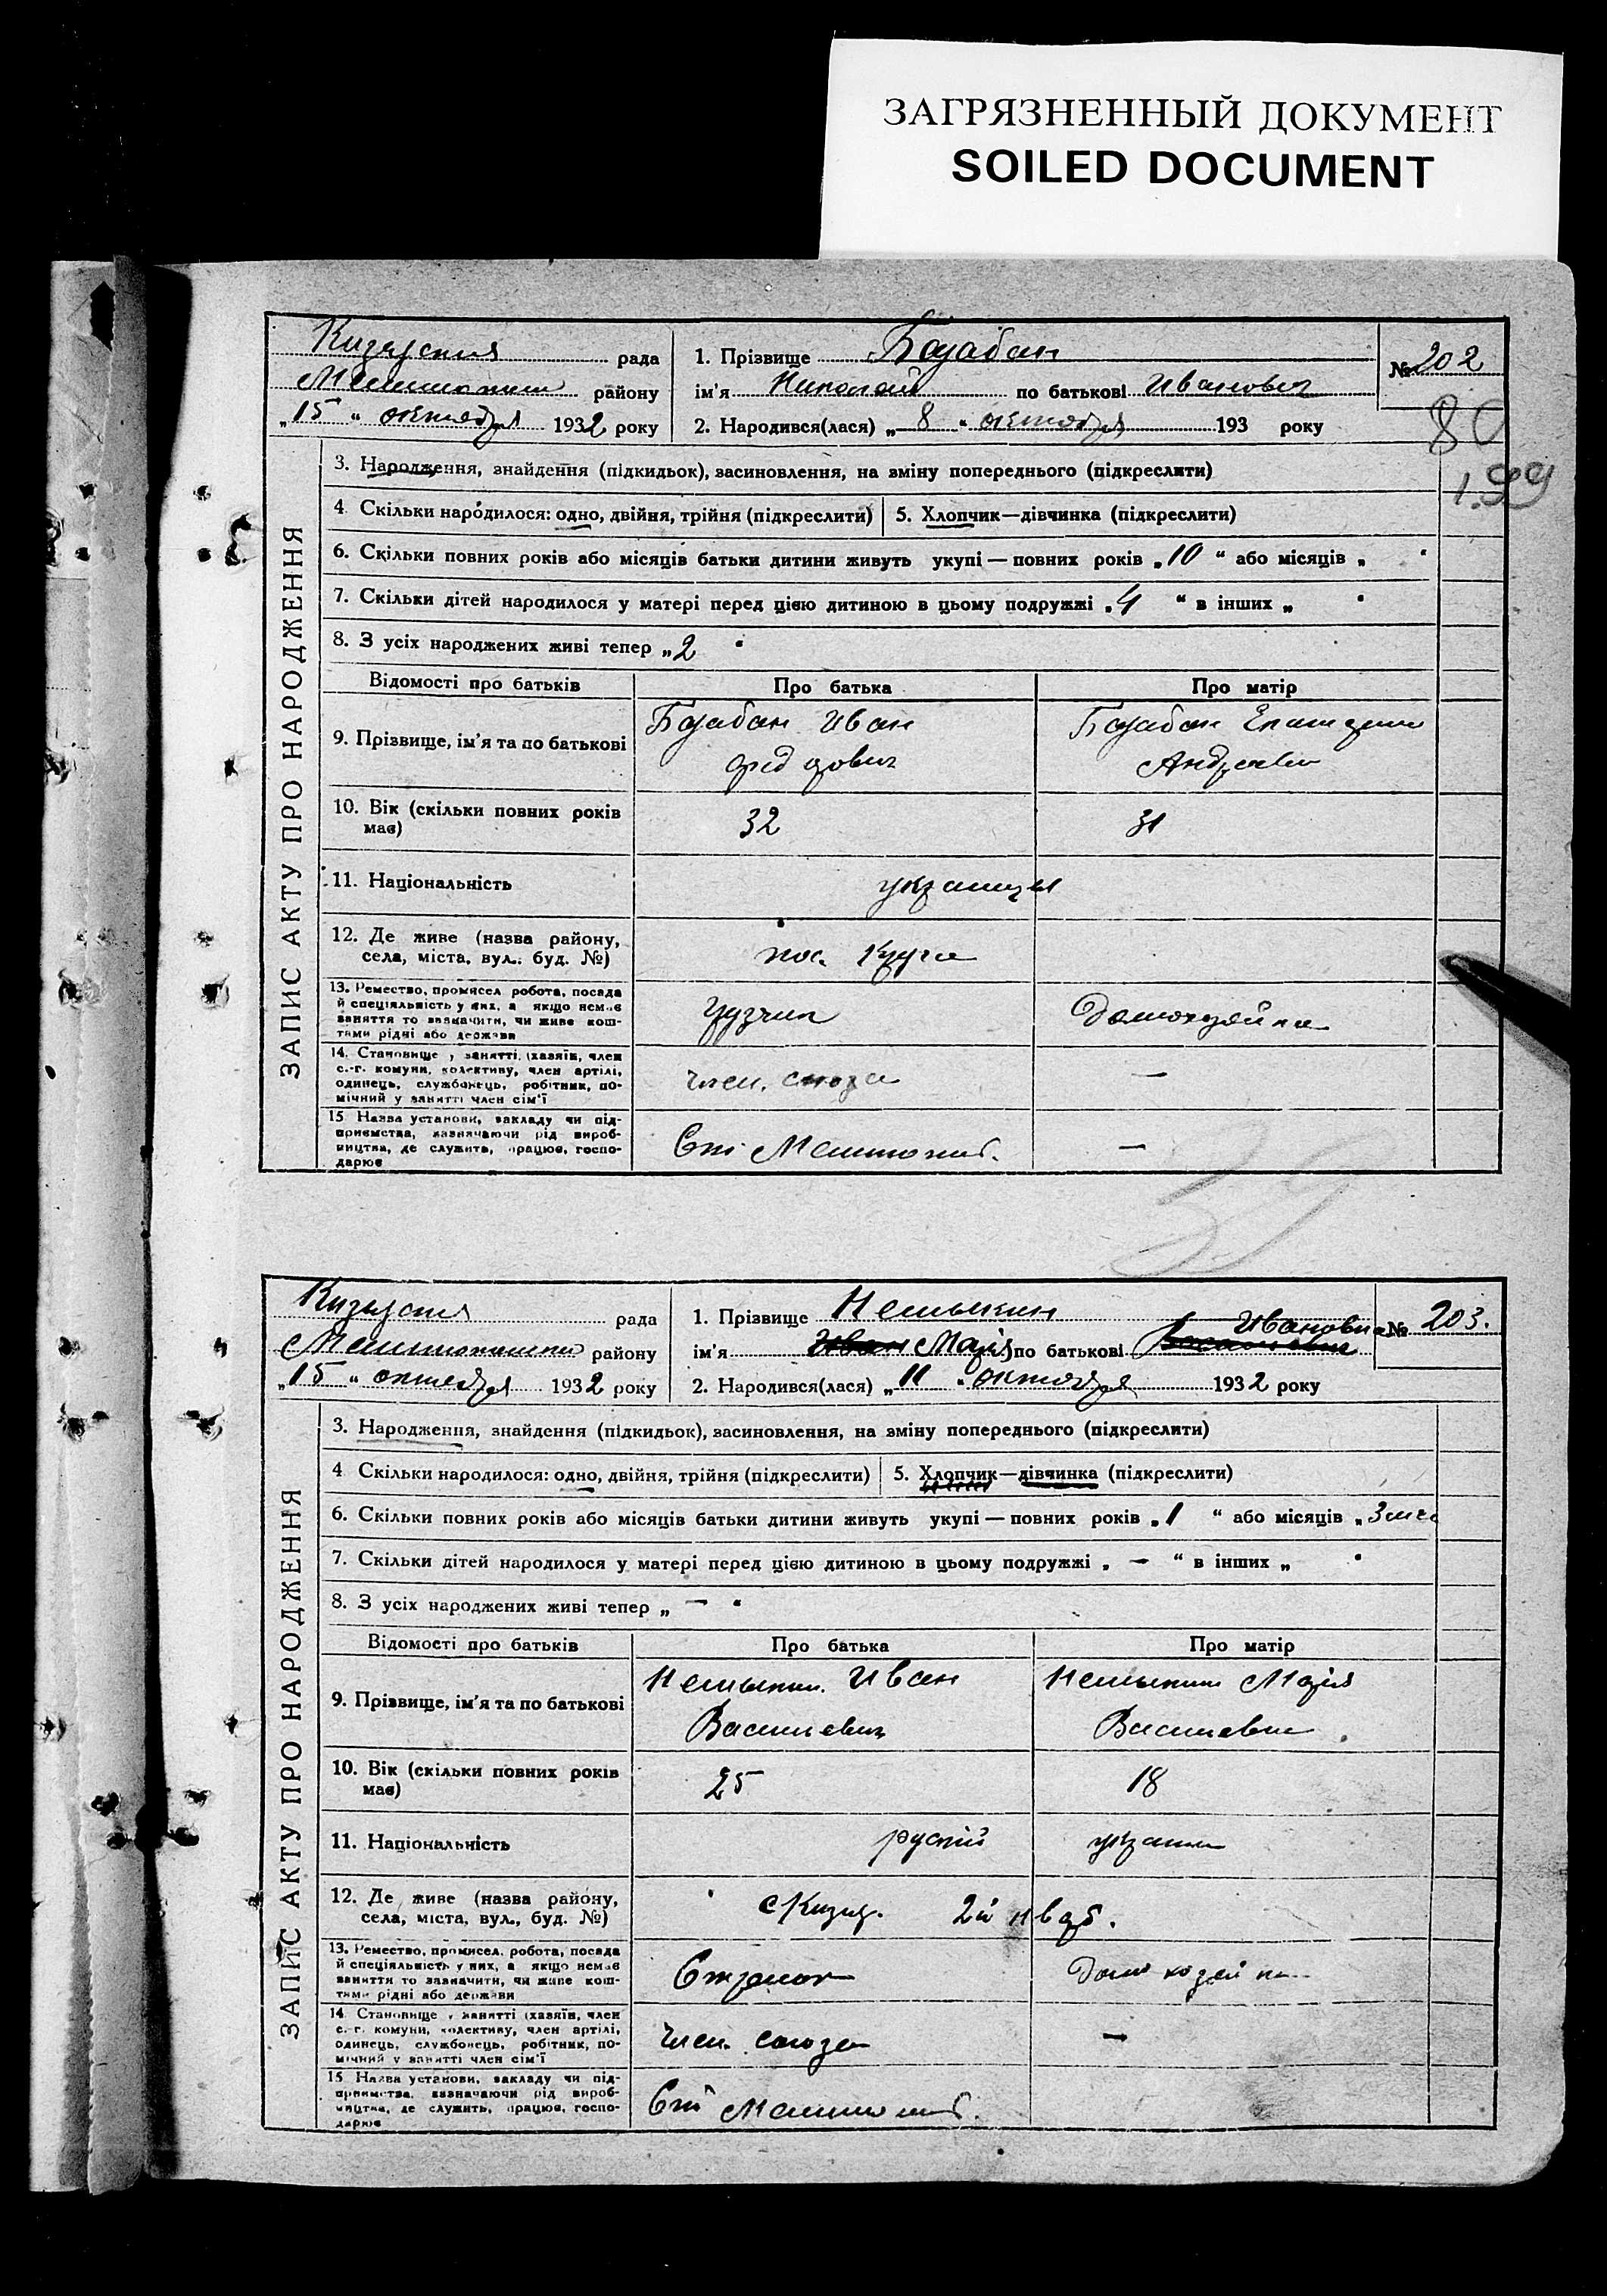 ЗАГРЯЗНЕННЫЙ ДОКУМЕНТ
SOILED DOCUMENT
ЗАПИС АКТУ ПРО НАРОДЖЕННЯ
рада
району
„15“ октября 1932 року
1. Прізвище
ім'я Николай по батькові Иванович
2. Народився(лася) „8“ октября 193 року
№ 202
80
199
3. Народження, знайдення (підкидьок), засиновлення, на зміну попереднього (підкреслити)
4 Скільки народилося: одно, двійня, трійня (підкреслити)
5. Хлопчик—дівчинка (підкреслити)
6. Скільки повних років або місяців батьки дитини живуть укупі — повних років „10“ або місяців „
7. Скільки дітей народилося у матері перед цією дитиною в цьому подружжі „4“ в інших „
8. З усіх народжених живі тепер „2
Відомості про батьків
Про батька
Про матір
9. Прізвище, ім'я та по батькові
Иван
10. Вік (скільки повних років
має)
32
31
11. Національність
украинцы
12. Де живе (назва району,
села, міста, вул. буд. №)
пос.
13. Ремество, промисел робота, посада
й спеціяльність у них, а якщо немає
заняття то зазначити, чи живе кош-
тами рідні або держави
грузчик
Домохозяйка
14. Становище у занятті (хазяїн, член
с.-г. комуни, колективу, член артілі,
одинець, службовець, робітник, по-
мічний у занятті член сім'ї
член. союза
—
15 Назва установи, закладу чи під-
приємства, зазначаючи рід вироб-
ництва, де служить, працює, госпо-
дарює
—
ЗАПИС АКТУ ПРО НАРОДЖЕННЯ
рада
району
„15“ октября 1932 року
1. Прізвище
ім'я Иван Марія по батькові Иванови
2. Народився(лася) „11“ октября 1932 року
№ 203.
3. Народження, знайдення (підкидьок), засиновлення, на зміну попереднього (підкреслити)
4 Скільки народилося: одно, двійня, трійня (підкреслити)
5. Хлопчик—дівчинка (підкреслити)
6. Скільки повних років або місяців батьки дитини живуть укупі — повних років „1“ або місяців „3
7. Скільки дітей народилося у матері перед цією дитиною в цьому подружжі „ — “ в інших „
8. З усіх народжених живі тепер „ — “
Відомості про батьків
Про батька
Про матір
9. Прізвище, ім'я та по батькові
Иван
Васильевич
Марія
10. Вік (скільки повних років
має)
25
18
11. Національність
12. Де живе (назва району,
села, міста, вул., буд. №)
13. Ремество, промисел, робота, посада
й спеціяльність у них, а якщо немає
заняття то зазначити, чи живе кош-
тами рідні або держави
Домохозяйка
14 Становище у занятті (хазяїн, член
с.-г. комуни, колективу, член артілі,
одинець, службовець, робітник, по-
мічний у занятті член сім'ї
член. союза
—
15 Назва установи, закладу чи під-
приємства, зазначаючи рід вироб-
ництва, де служить, працює, госпо-
дарює